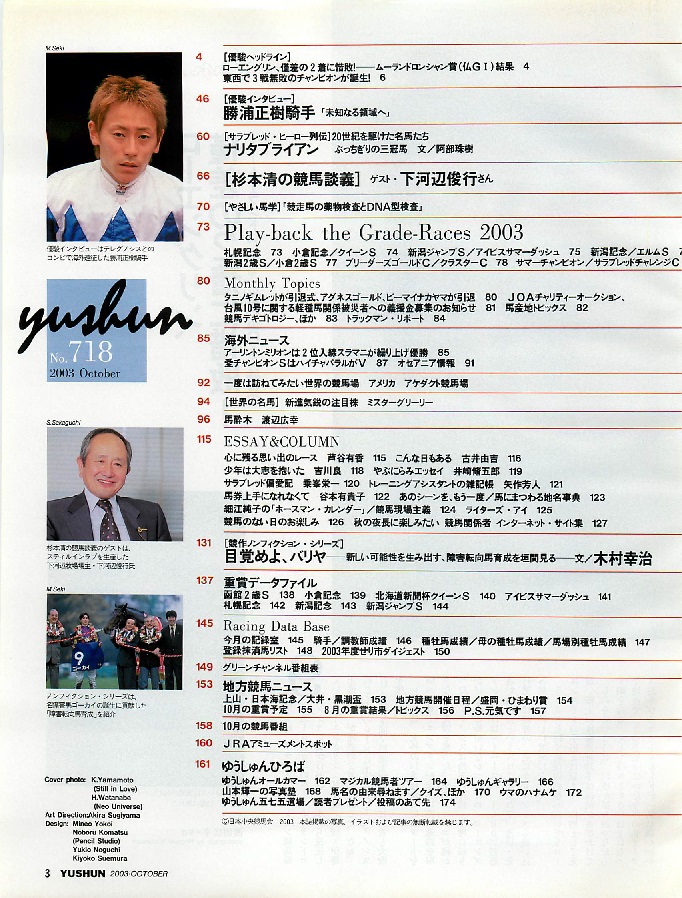 M.Seki
優駿インタビューはテレグノシスとの
コンビで海外遠征した勝浦正樹騎手
yushun
No.718
2003 October
S.Sakaguchi
杉本清の競馬談義のゲストは、
スティルインラブを生産した
下河辺牧場場主・下河辺俊行氏
M.Seki
9
ゴーカイ
ノンフィクション・シリーズは、
名障害馬ゴーカイの誕生に貢献した
「障害転向馬育成」を紹介
Cover photo: K.Yamamoto
(Still in Love)
H.Watanabe
(Neo Universe)
Art Direction:Akira Sugiyama
Design: Mineo Yokoi
Noboru Komatsu
(Pencil Studio)
Yukio Noguchi
Kiyoko Suemura
4 [優駿ヘッドライン]
ローエングリン、僅差の2着に惜敗!――ムーランドロンシャン賞(仏GⅠ)結果 4
東西で3戦無敗のチャンピオンが誕生! 6
46 [優駿インタビュー]
勝浦正樹騎手「未知なる領域へ」
60 [サラブレッド・ヒーロー列伝]20世紀を駆けた名馬たち
ナリタブライアン ぶっちぎりの三冠馬 文/阿部珠樹
66 [杉本清の競馬談義] ゲスト・下河辺俊行さん
70 [やさしい馬学]「競走馬の薬物検査とDNA型検査」
73 Play-back the Grade-Races 2003
札幌記念 73 小倉記念/クイーンS 74 新潟ジャンプS/アイビスサマーダッシュ 75 新潟記念/エルムS 7
新潟2歳S/小倉2歳S 77 ブリーダーズゴールドC/クラスターC 78 サマーチャンピオン/サラブレッドチャレンジC
80 Monthly Topics
タニノギムレットが引退式、アグネスゴールド、ビーマイナカヤマが引退 80 JOAチャリティーオークション、
台風10号に関する軽種馬関係被災者への義援金募集のお知らせ 81 馬産地トピックス 82
競馬デキゴトロジー、ほか 83 トラックマン・リポート 84
85 海外ニュース
アーリントンミリオンは2位入線スラマニが繰り上げ優勝 85
愛チャンピオンSはハイチャパラルがV 87 オセアニア情報 91
92 一度は訪ねてみたい世界の競馬場 アメリカ アケダクト競馬場
94 [世界の名馬] 新進気鋭の注目株 ミスターグリーリー
96 馬酔木 渡辺広幸
115 ESSAY&COLUMN
心に残る思い出のレース 芦谷有香 115 こんな日もある 古井由吉 116
少年は大志を抱いた 吉川良 118 やぶにらみエッセイ 井崎脩五郎 119
サラブレッド偏愛記 乗峯栄一 120 トレーニングアシスタントの雑記帳 矢作芳人 121
馬券上手になれなくて 谷本有貴子 122 あのシーンを、もう一度/馬にまつわる地名事典 123
細江純子の「ホースマン・カレンダー」/競馬現場主義 124 ライターズ・アイ 125
競馬のない日のお楽しみ 126 秋の夜長に楽しみたい 競馬関係者 インターネット・サイト集 127
131 [競作ノンフィクション・シリーズ]
目覚めよ、バリヤ 新しい可能性を生み出す、障害転向馬育成を垣間見る――文/木村幸治
137 重賞データファイル
函館2歳S 138 小倉記念 139 北海道新聞杯クイーンS 140 アイビスサマーダッシュ 141
札幌記念 142 新潟記念 143 新潟ジャンプS 144
145 Racing Data Base
今月の記録室 145 騎手/調教師成績 146 種牡馬成績/母の種牡馬成績/馬場別種牡馬成績 147
登録抹消馬リスト 148 2003年度せり市ダイジェスト 150
149 グリーンチャンネル番組表
153 地方競馬ニュース
上山・日本海記念/大井・黒潮盃 153 地方競馬開催日程/盛岡・ひまわり賞 154
10月の重賞予定 155 8月の重賞結果/トピックス 156 P.S.元気です 157
158 10月の競馬番組
160 JRAアミューズメントスポット
161 ゆうしゅんひろば
ゆうしゅんオールカマー 162 マジカル競馬者ツアー 164 ゆうしゅんギャラリー 166
山本輝一の写真塾 168 馬名の由来尋ねます/クイズ、ほか 170 ウマのハナムケ 172
ゆうしゅん五七五選場/読者プレゼント/投稿のあて先 174
©日本中央競馬会 2003 本誌掲載の写真、イラストおよび記事の無断転載を禁じます。
3 YUSHUN 2003·OCTOBER